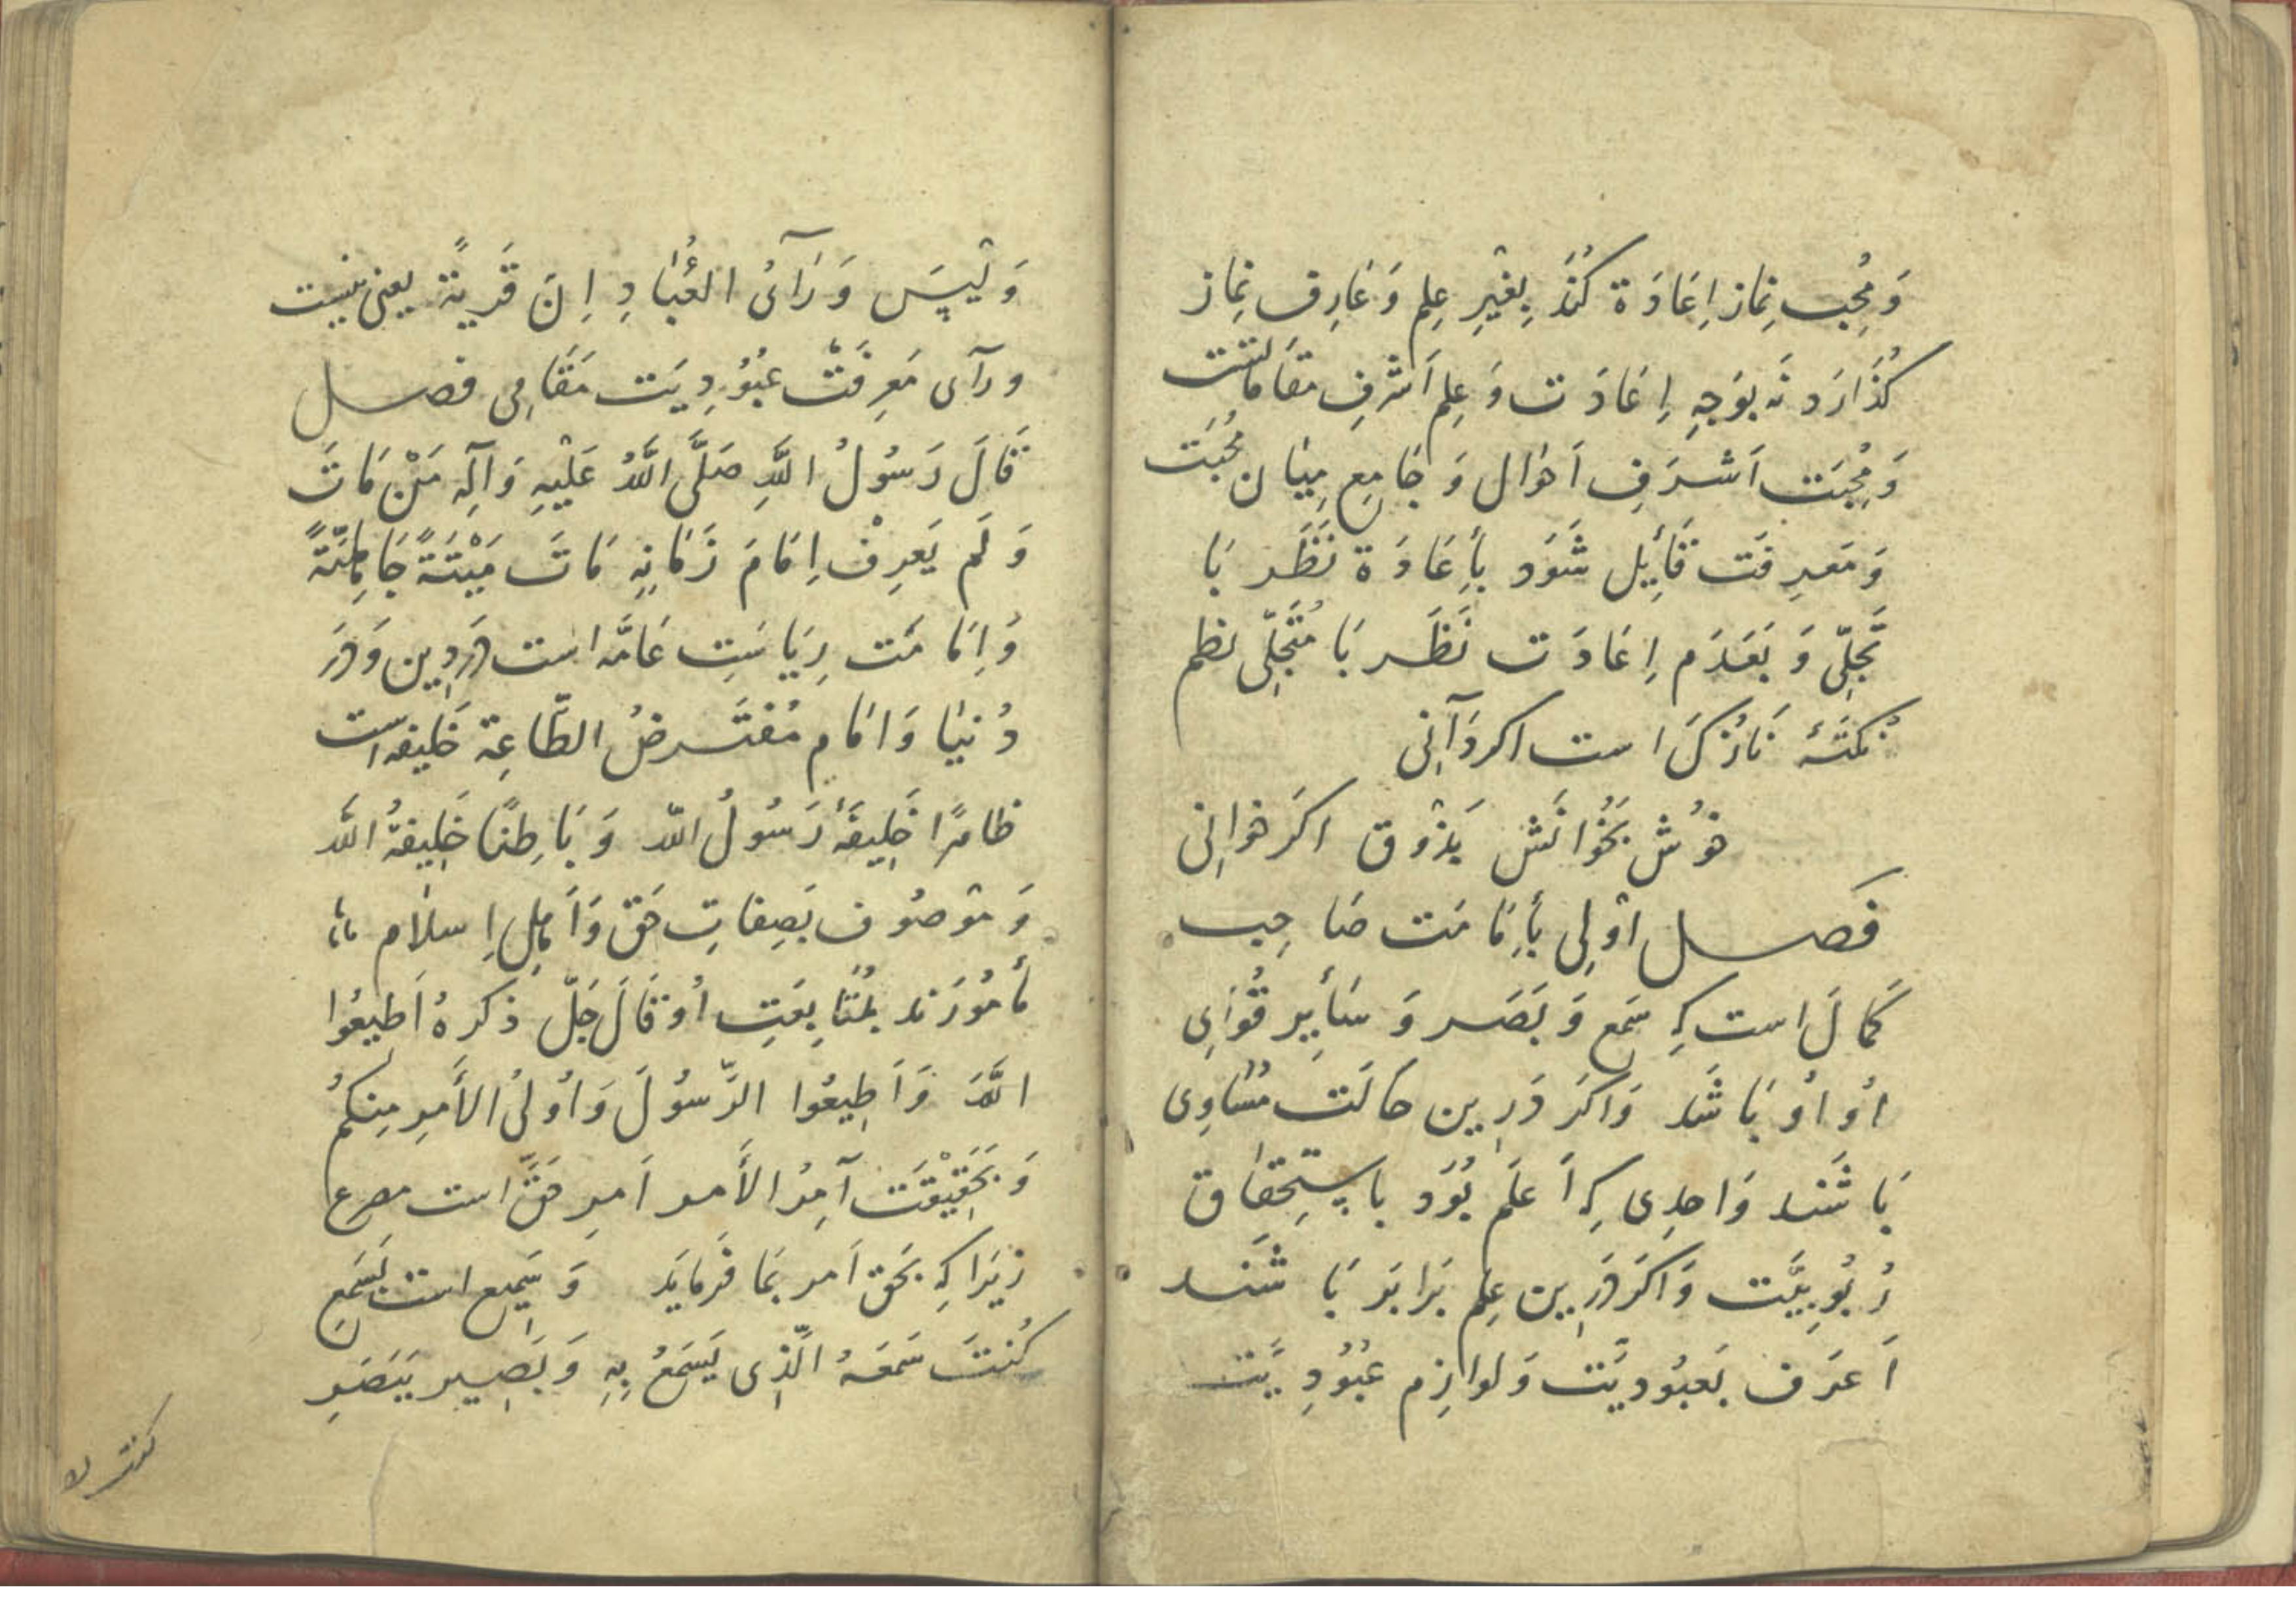 وَمُحِب نِماز اِعَادَة كُنَد بِغَيْرِ عِلم وَعَارِف نِماز
كُذَارَد نَه بوَجهِ اِعَادَت وَعِلم اَشرفِ مقَاماتست
وَمُحِبَت اَشرَفِ اَحوال وَ جَامِع مِيَان مُحِبَت
وَمَعرِفَت قَايِل شَوَد بأِعَادَة نَظَر بَا
تَجَلِّى وَ بَعَدَم اِعَادَت نَظَر بَا مُتَجَلِّى نظم
نُكتَهٔ نَازُكَ است اكر دَآنِى
خوُش بَخُوانَش بَذوْق اكَر خوانِى
فَصل اوْلِى بأِمَامَت صَاحِب
كَمالَ است كِه سَمع وَ بَصَر وَ سَأيِر قُوَاىِ
اوُ اوُ بَاشَد وَاكَر دَرين حالَت مُسَاوِى
بَاشَند وَاحدِى كِه اَعلَم بُوَد باِستِحقَاق
رُبُوبِيَّت وَاكَر دَرين عِلم بَرابَر بَا شَند
اَعرَف بَعبُوديَّت وَلوازِم عُبُودِيَّت
وَلَيْسَ وَرَآىُ العُبَّادِ اِنَ قَريَةً يعنى نيست
ورآى مَعرِفَتْ عبُوُدِيَت مَقَامِى فصل
قَالَ رَسُولُ اللَّهِ صَلَّى اللَّهُ عَلَيْهِ وَآلِهِ مَنْ مَاتَ
وَلَم يَعرِفْ اِمَامَ زَمَانِهِ مَاتَ مَيْتَةً جَاهِلِيَّةً
وَاِمَامَت رِيَاسَتِ عَامَّه است دَردِين وَدَر
دُنيَا وَامَام مُفتَرضُ الطَّاعِة خَليفه است
ظاهرًا خَلِيفَهٔ رَسُولُ اللّه وَ بَاطِنًا خَلِيفهُ اللَّه
وَموْصُوف بَصِفاتِ حَق وَاَهلِ اِسلام
مأمُورَند بمُتَابِعَتِ اوُ قَالَ جَلّ ذكرهُ اَطيعُوا
اللَّهَ وَاَطِيعُوا الرَّسوُلَ وَاوُلىُ الأَمرِ مِنكُم
وَبَحَقِيْقَت آمِرُ الأَمر اَمرِ حَقَّ است مصرع
زيَرا كِه بَحق اَمر بمَا فَرمايَد وَ سَمِيع است بَسَمعِ
كُنتَ سَمعَهُ الَّذِى يَسمَعُ بِهِ وَ بَصِير بَبَصَرِ
كنت لا